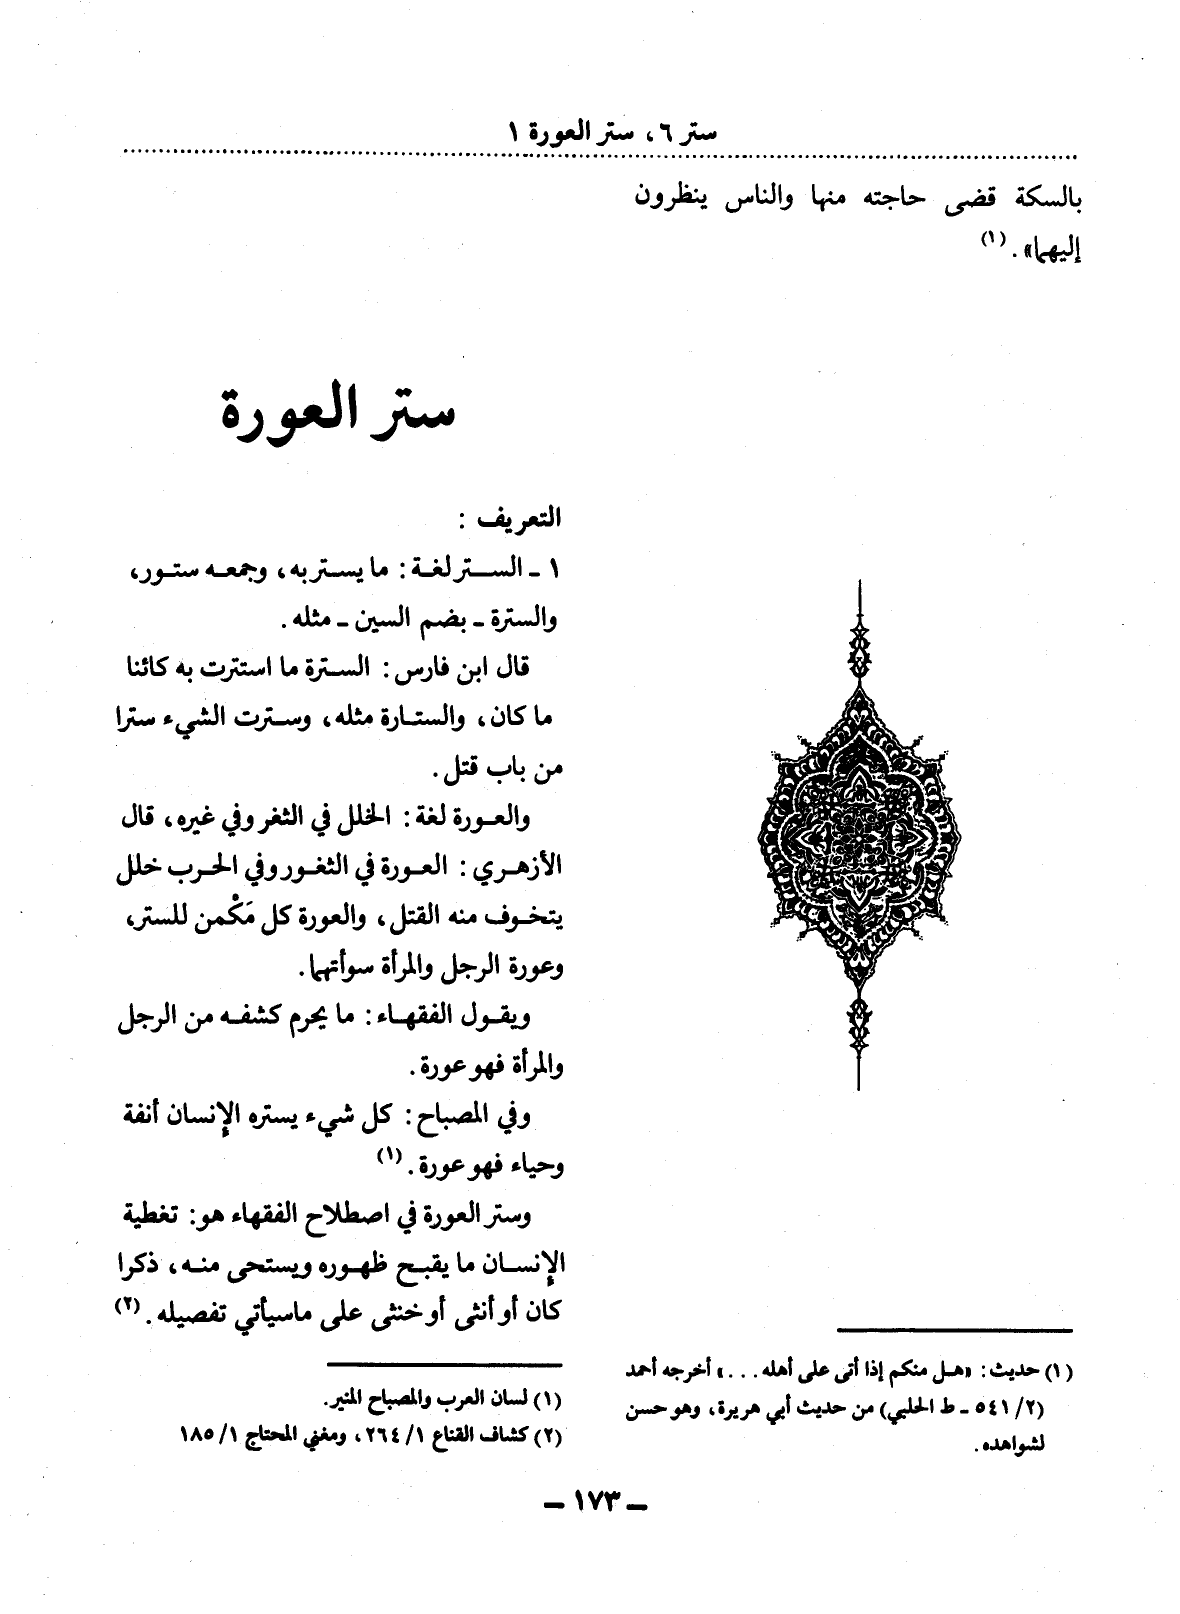 ستر ٦، ستر العورة ١
بالسكة قضى حاجته منها والناس ينظرون
إليهما». (١)
(١) حديث: «هل منكم إذا أتى على أهله. . .» أخرجه أحمد
(٢/ ٥٤١ ـ ط الحلبي) من حديث أبي هريرة، وهو حسن
لشواهده.
ستر العورة
التعريف :
١ ـ الستر لغة: ما يستر به، وجمعه ستور،
والسترة ـ بضم السين ـ مثله.
قال ابن فارس: السترة ما استترت به كائنا
ما كان، والستارة مثله، وسترت الشيء سترا
من باب قتل.
والعورة لغة: الخلل في الثغر وفي غيره، قال
الأزهري: العورة في الثغور وفي الحرب خلل
يتخوف منه القتل، والعورة كل مَكْمن للستر،
وعورة الرجل والمرأة سوأتهما.
ويقول الفقهاء: ما يحرم كشفه من الرجل
والمرأة فهو عورة.
وفي المصباح: كل شيء يستره الإنسان أنفة
وحياء فهو عورة. (١)
وستر العورة في اصطلاح الفقهاء هو: تغطية
الإنسان ما يقبح ظهوره ويستحى منه، ذكرا
كان أو أنثى أو خنثى على ماسيأتي تفصيله. (٢)
(١) لسان العرب والمصباح المنير.
(٢) كشاف القناع ١/ ٢٦٤، ومغني المحتاج ١/ ١٨٥
ـ ١٧٣ ـ